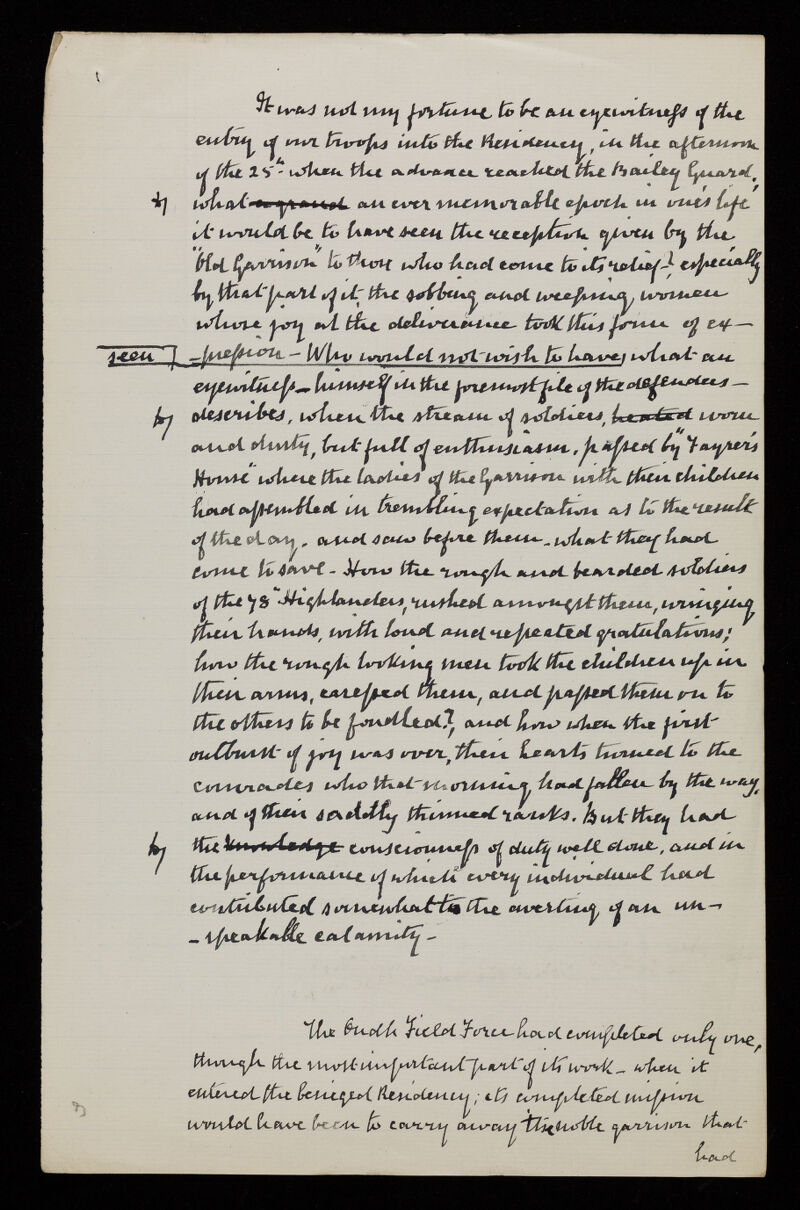 It was not my fortune to be an eyewitness of the
entry of our troops into the Residency, in the afternoon
of the 25th when the advance reached the Bailey Guard.
what a grand an ever memorable epoch in one's life
it would be to have seen the reception given by the
"Old Garrison" to those who had come to its relief? especially
by that part of it, the sobbing and weeping, women
whose joy at the deliverance took this form of ex-
seen -pression - Who would not wish to have, what an
eyewitness - himself in the foremost file of the defenders -
describes, when the stream of soldiers, heated worn
and dusty, but full of enthusiasm, passed by "Fayrer's
House" where the ladies of the Garrison with their children
had assembled in trembling expectation as to the result
of the day. and saw before them - what they had
come to save - How the rough and bearded soldiers
of the 78th Highlanders, rushed amongst them, wringing
their hands, with loud and repeated gratulations;
how the rough looking men took the children up in
their arms, caressed them, and passed them on to
the others to be fondled?, and how when the first
outburst of joy was over, their hearts turned to the
comrades who that morning, had fallen by the way,
and of their saddly thinned ranks. But they had
the knowledge consciousness of duty well done, and in
the performance of which every individual had
contributed somewhat to the averting of an un-
-speakable calamity -
The Oudh Field Force had completed only one,
though the most important part of its work - when it
entered the besieged Residency; its completed mission
would have been to carry away the noble garrison that
had